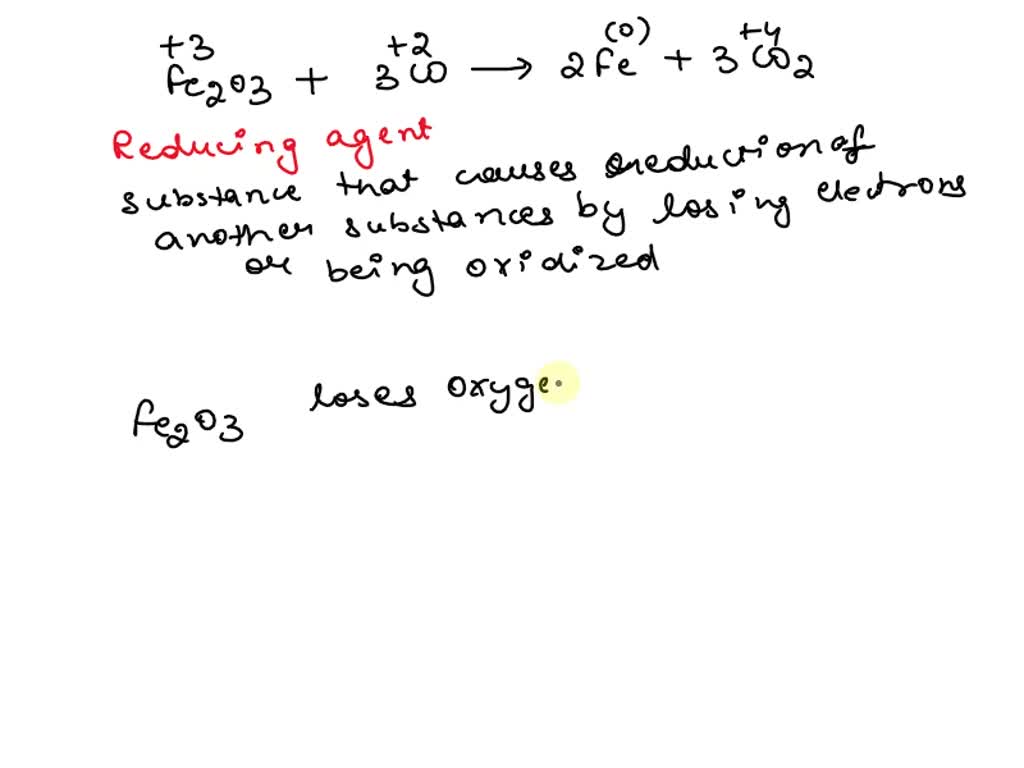 +3 +2 (0) +4
Fe2O3 + 3 CO → 2Fe + 3 CO2
Reducing agent
substance that causes reduction of
another substances by losing electrons
or being oxidized
Fe2O3 loses oxyge